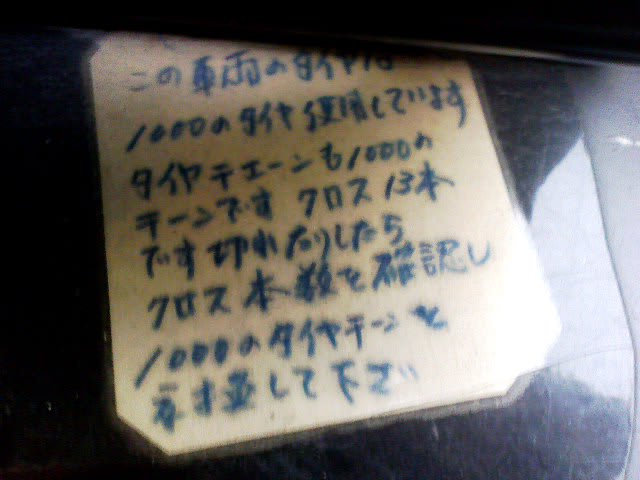 この車両のタイヤは
1000のタイヤ使用しています
タイヤチェーンも1000の
チーンです クロス13本
です切れたりしたら
クロス本数を確認し
1000のタイヤチーンを
して下さい